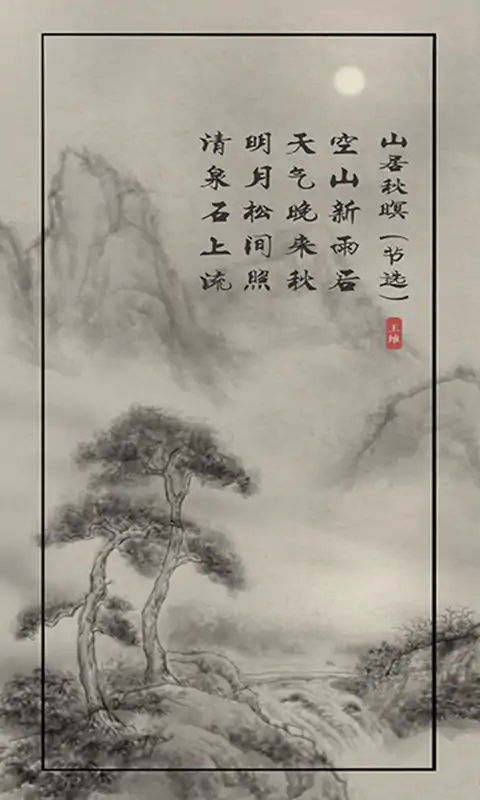 山居秋暝(节选)
王维
空山新雨后
天气晚来秋
明月松间照
清泉石上流